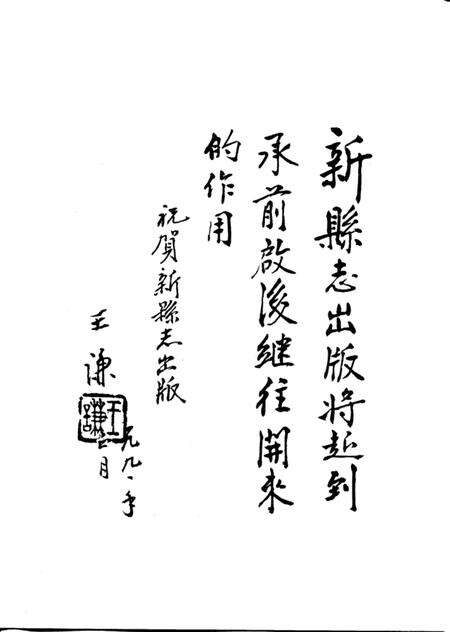 新縣志出版將起到
承前啟後继往開來
的作用
祝賀新縣志出版
王謙
一九九一年
月